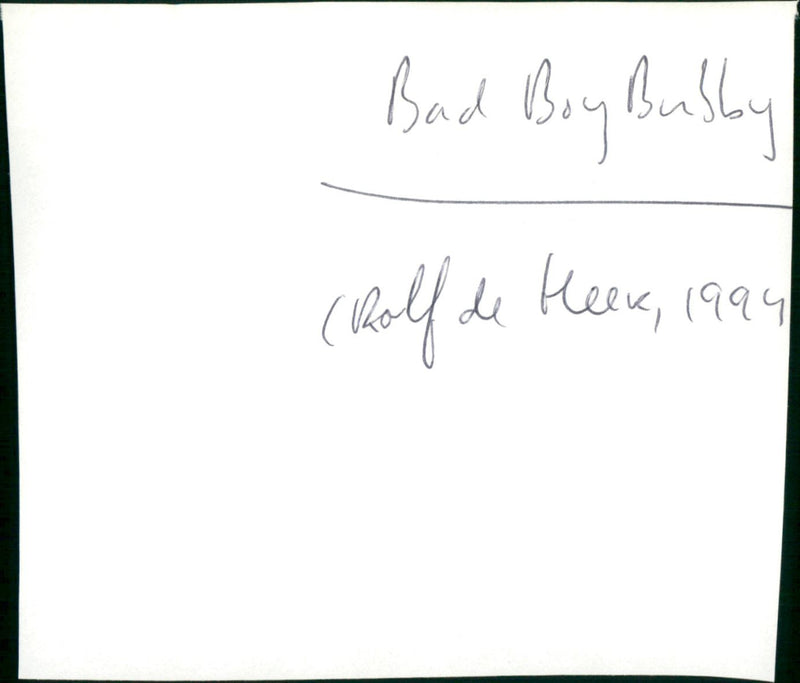 Bad Boy Bubby
(Rolf de Heer, 1994